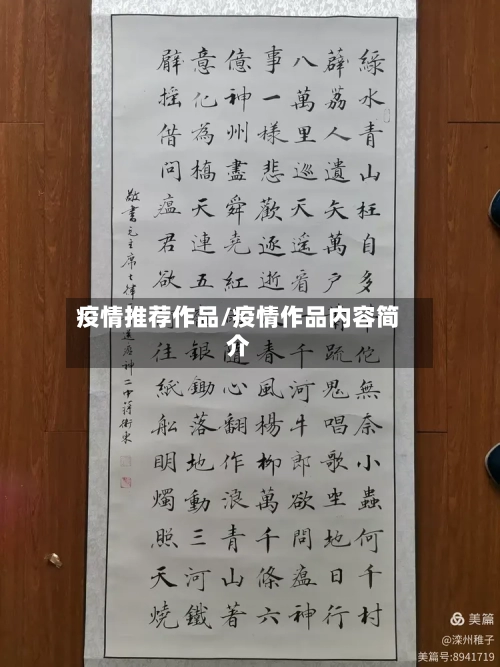 綠水青山枉自多佗無奈小蟲何千村
薜荔人遺矢萬戶疏鬼唱歌坐地日行
八萬里巡天遙看千河牛郎欲問瘟神
事一樣悲歡逐逝春風楊柳萬千條六
億神州盡舜堯紅隨心翻作浪青山著
意化為橋天連五銀鋤落地動三河鐵
臂搖借問瘟君欲往紙船明燭照天燒
敬書毛主席七律送瘟神二
疫情推荐作品/疫情作品内容简
介
美篇
@滦州稚子
美篇号:8941719